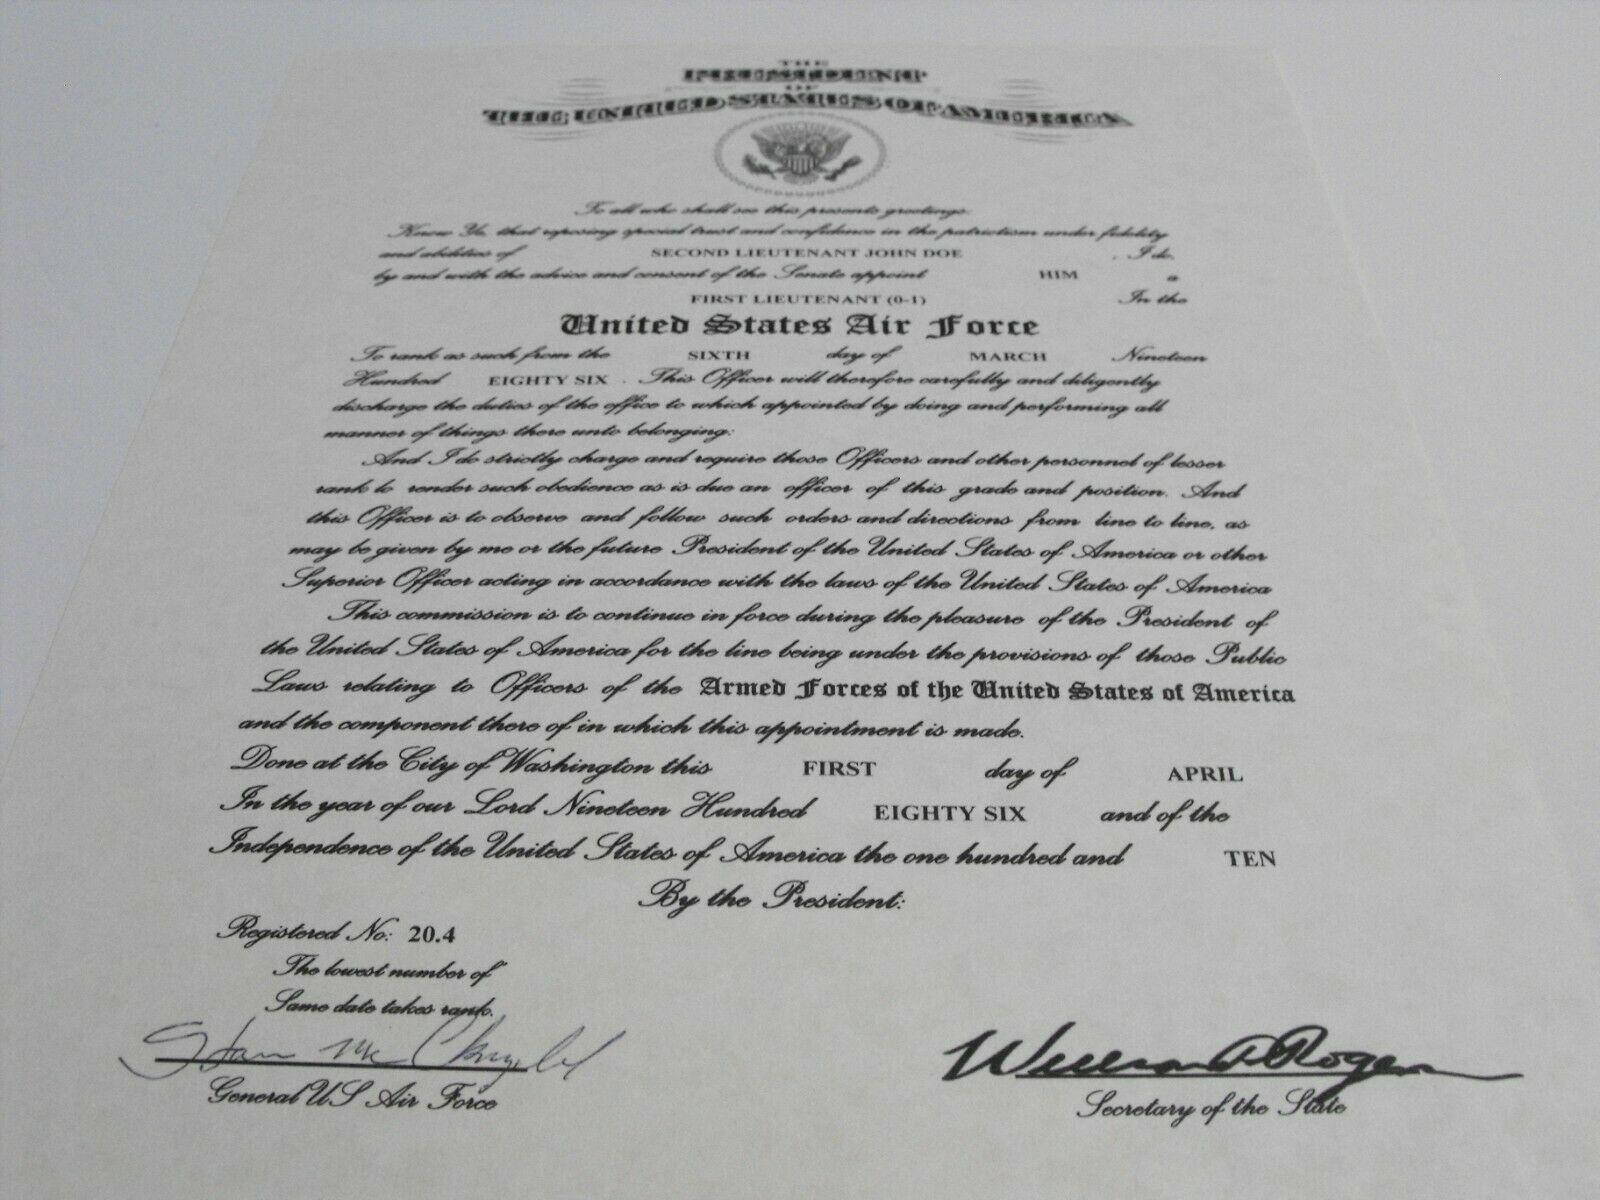 THE
PRESIDENT
OF
THE UNITED STATES OF AMERICA
To all who shall see this presents greetings:
Know Ye, that reposing special trust and confidence in the patriotism under fidelity
and abilities of SECOND LIEUTENANT JOHN DOE , I do,
by and with the advice and consent of the Senate appoint HIM a
FIRST LIEUTENANT (0-1) In the
United States Air Force
To rank as such from the SIXTH day of MARCH Nineteen
Hundred EIGHTY SIX . This Officer will therefore carefully and diligently
discharge the duties of the office to which appointed by doing and performing all
manner of things there unto belonging:
And I do strictly charge and require those Officers and other personnel of lesser
rank to render such obedience as is due an officer of this grade and position. And
this Officer is to observe and follow such orders and directions from line to line, as
may be given by me or the future President of the United States of America or other
Superior Officer acting in accordance with the laws of the United States of America
This commission is to continue in force during the pleasure of the President of
the United States of America for the line being under the provisions of those Public
Laws relating to Officers of the Armed Forces of the United States of America
and the component there of in which this appointment is made.
Done at the City of Washington this FIRST day of APRIL
In the year of our Lord Nineteen Hundred EIGHTY SIX and of the
Independence of the United States of America the one hundred and TEN
By the President:
Registered No: 20.4
The lowest number of
Same date takes rank.
William Rogers
General US Air Force
Secretary of the State